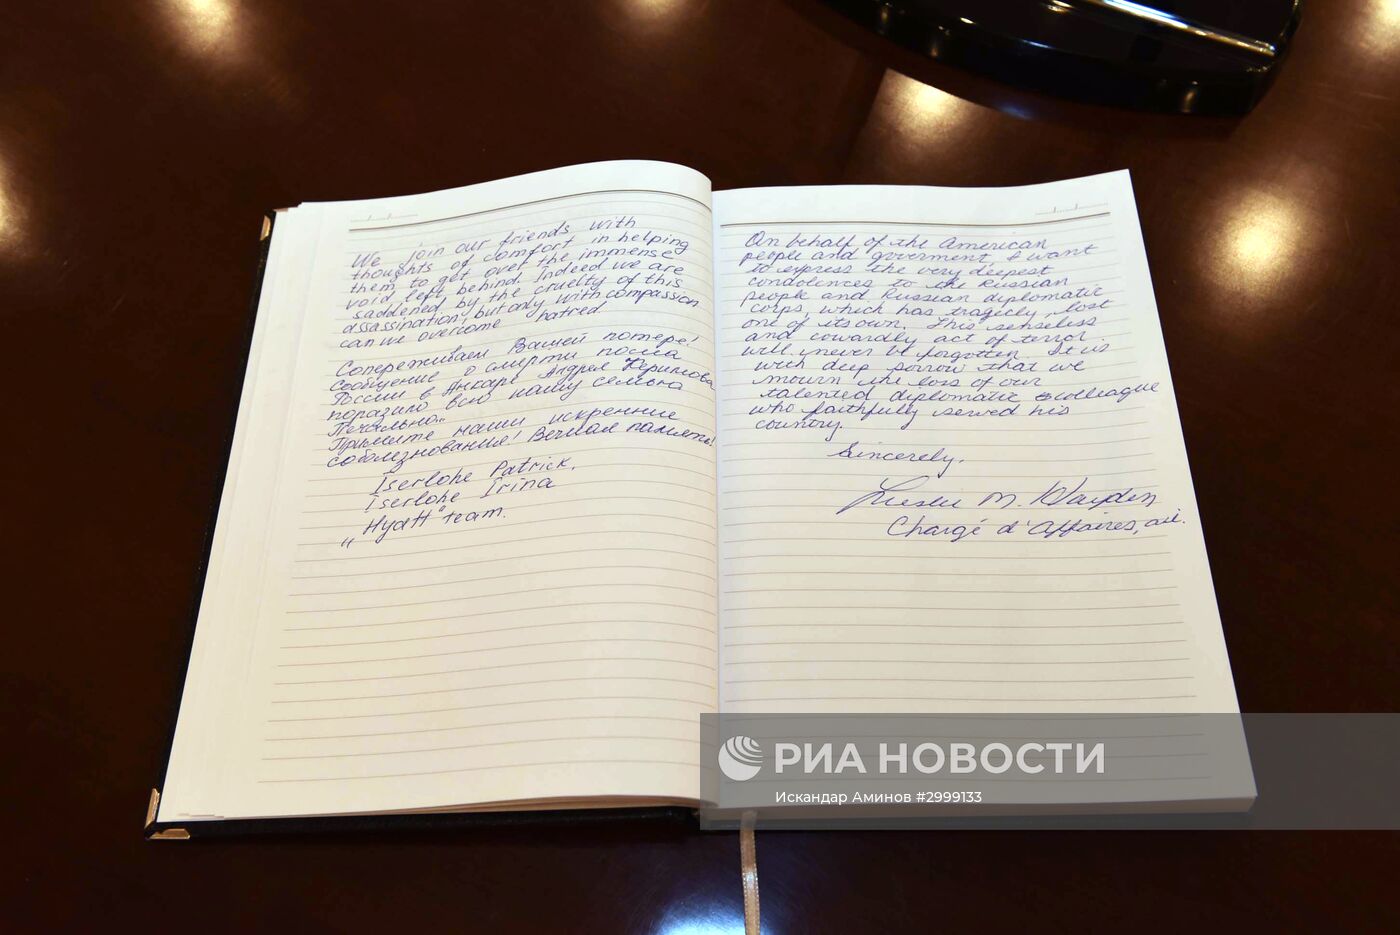 We join our friends with
thoughts of comfort in helping
them to get over the immense
void, left behind. Indeed we are
saddened by the cruelty of this
assassination, but only with compassion
can we overcome hatred
Сопереживаем Вашей потере!
Сообщение о смерти посла
России в Анкаре Андрея Керимова
поразило всю нашу семью
Печально...
Примите наши искренние
соболезнования! Вечная память!
Iserlohe Patrick,
Iserlohe Irina
„Hyatt" team.
On behalf of the American
people and goverment I want
to express the very deepest
condolences to the Russian
people and Russian diplomatic
corps, which has tragicly, lost
one of its own. This senseless
and cowardly act of terror
will never be forgotten. It is
with deep sorrow that we
mourn the loss of our
talented diplomatic colleague
who faithfully served his
country.
Sincerely,
M.
Chargé d'Affaires, a.i.
РИА НОВОСТИ
Искандар Аминов #2999133